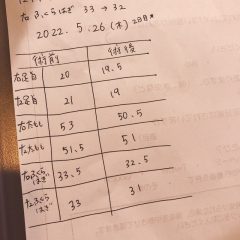 右ふくらはぎ 33 → 32
2022. 5. 26 (木) 2日目
術前 術後
右足首 20 19.5
左足首 21 19
右太もも 53 50.5
左太もも 51.5 51
右ふくらはぎ 33.5 32.5
左ふくらはぎ 33 31